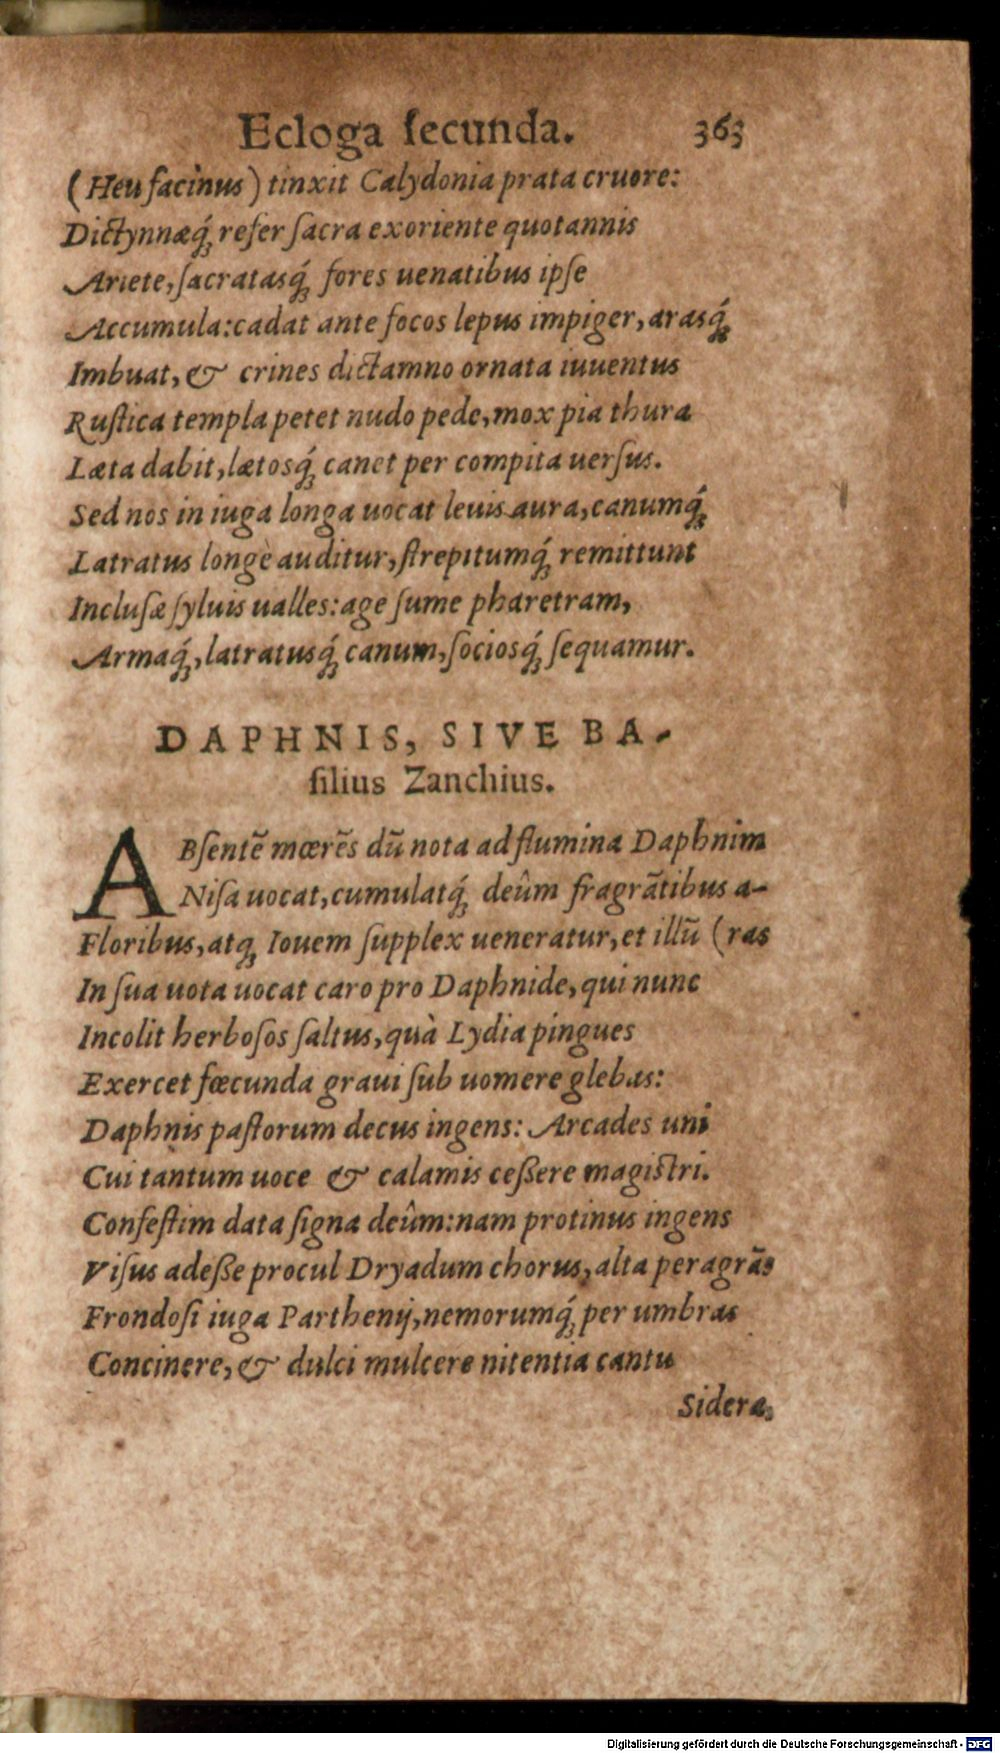 Ecloga ſecunda. 363
(Heu facinus) tinxit Calydonia prata cruore:
Dictynnæq́ꝫ refer ſacra exoriente quotannis
Ariete, ſacratasq́ꝫ fores uenatibus ipſe
Accumula: cadat ante focos lepus impiger, arasq́ꝫ
Imbuat, & crines dictamno ornata iuuentus
Ruſtica templa petet nudo pede, mox pia thura
Læta dabit, lætosq́ꝫ canet per compita uerſus.
Sed nos in iuga longa uocat leuis aura, canumq́ꝫ
Latratus longè auditur, ſtrepitumq́ꝫ remittunt
Incluſæ ſyluis ualles: age ſume pharetram,
Armaq́ꝫ, latratusq́ꝫ canum, ſociosq́ꝫ ſequamur.
DAPHNIS, SIVE BA-
ſilius Zanchius.
ABſentẽ mœrẽs dũ nota ad flumina Daphnim
Niſa uocat, cumulatq́ꝫ deûm fragrãtibus a-
Floribus, atqꝫ Iouem ſupplex ueneratur, et illũ (ras
In ſua uota uocat caro pro Daphnide, qui nunc
Incolit herboſos ſaltus, quà Lydia pingues
Exercet fœcunda graui ſub uomere glebas:
Daphnis paſtorum decus ingens: Arcades uni
Cui tantum uoce & calamis ceßere magiſtri.
Confeſtim data ſigna deûm: nam protinus ingens
Viſus adeße procul Dryadum chorus, alta peragrãs
Frondoſi iuga Parthenij, nemorumq́ꝫ per umbras
Concinere, & dulci mulcere nitentia cantu
Sidera,
Digitalisierung gefördert durch die Deutsche Forschungsgemeinschaft - DFG